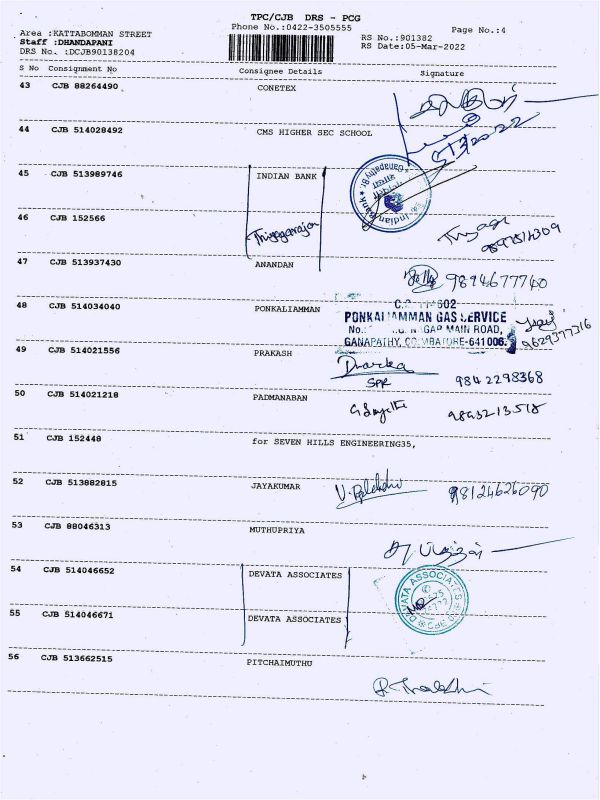 TPC/CJB DRS - PCG
Phone No.:0422-3505555
Page No.:4
Area :KATTABOMMAN STREET
Staff :DHANDAPANI
DRS No. :DCJB90138204
RS No.:901382
RS Date:05-Mar-2022
S No Consignment No Consignee Details Signature
43 CJB 88264490 CONETEX
44 CJB 514028492 CMS HIGHER SEC SCHOOL
5/3/2022
45 CJB 513989746 INDIAN BANK
Indian Bank Ganapathy Br.
46 CJB 152566 Thiyagarajan
47 CJB 513937430 ANANDAN 9894677740
48 CJB 514034040 PONKALIAMMAN
PONKALIAMMAN GAS SERVICE
NAGAR MAIN ROAD,
GANAPATHY, COIMBATORE-641 006.
9629377316
49 CJB 514021556 PRAKASH
SPR 9842298368
50 CJB 514021218 PADMANABAN
51 CJB 152448 for SEVEN HILLS ENGINEERING35,
52 CJB 513882815 JAYAKUMAR 98124626090
53 CJB 88046313 MUTHUPRIYA
54 CJB 514046652 DEVATA ASSOCIATES
DEVATA ASSOCIATES CBE
55 CJB 514046671 DEVATA ASSOCIATES
56 CJB 513662515 PITCHAIMUTHU